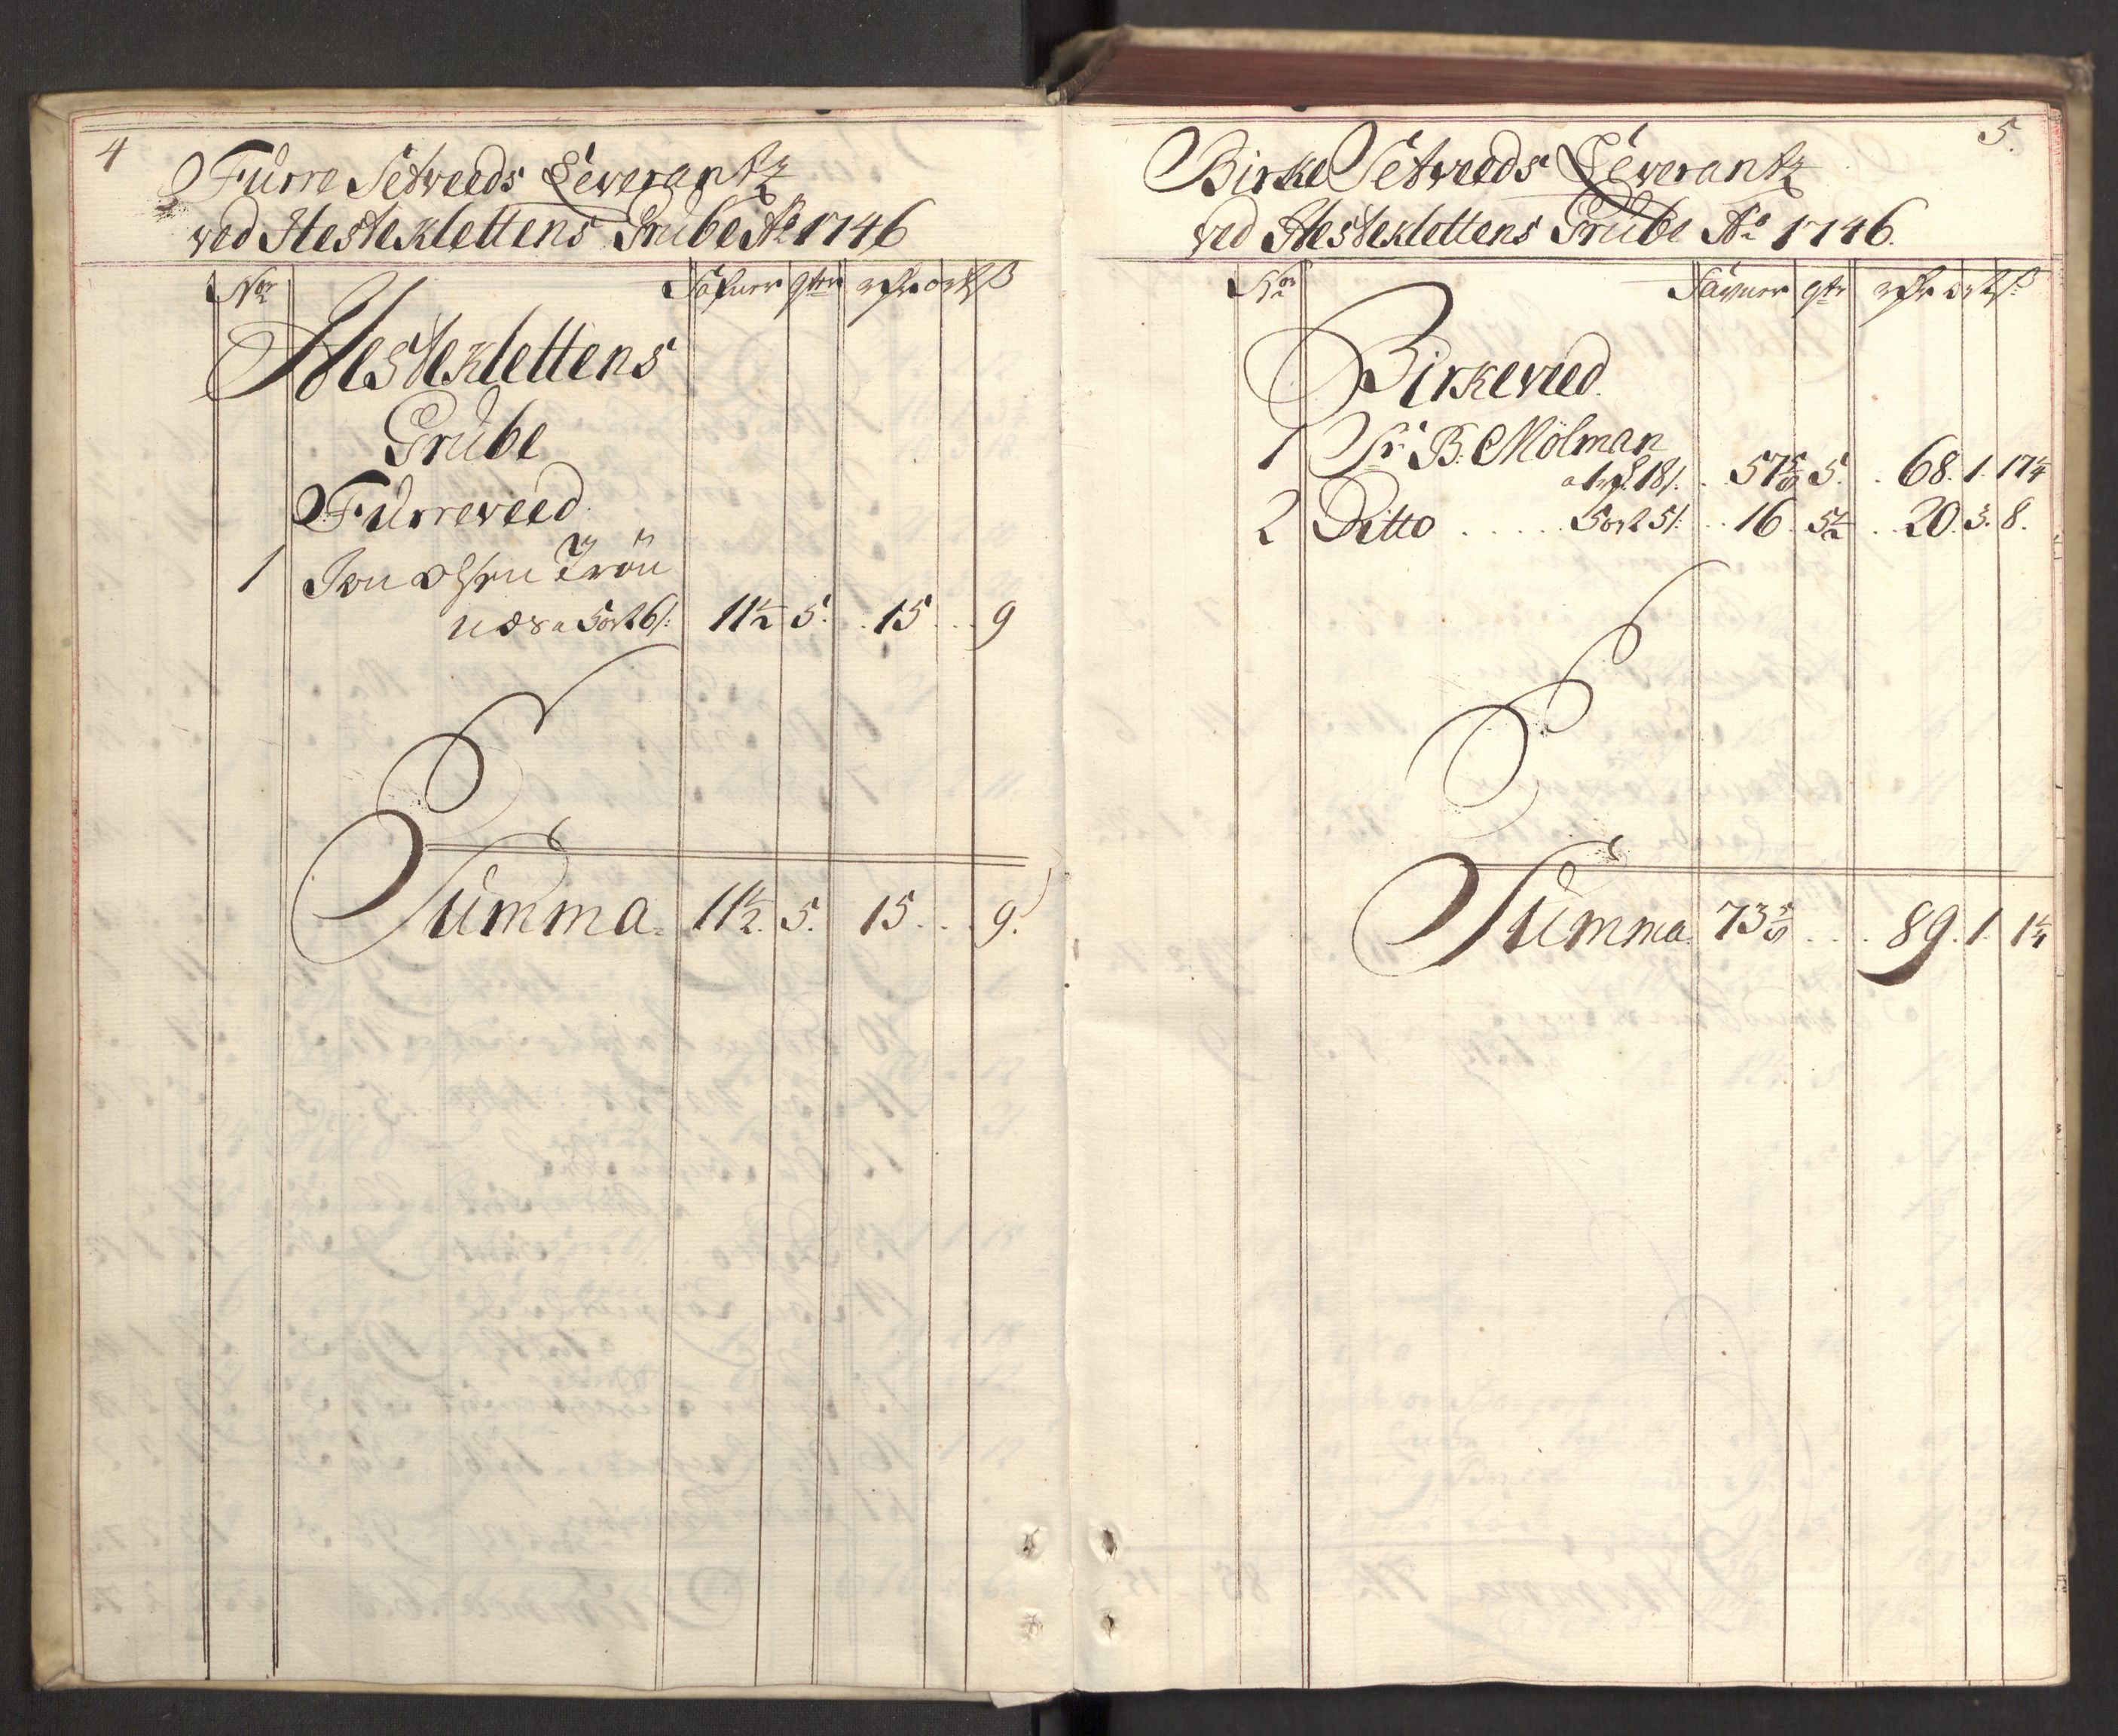 4
Furre Setveeds Leverantz
ved Hesteklettens Grube Ao 1746
No Favner qtr rdr ort ß
Hestekletten​s
Grube
Furreveed.
1 Jon Olsen Trøn
næs a 5 ort 6 ß: 11½ 5. 15 . . . 9
Summa. 11½. 5. 15 . . . 9.
5.
Birke Setveeds Leverantz
ved Hesteklettens Grube Ao 1746.
No Favner qtr rdr ort ß
Birkeveed.
1 Sr B: Mölman
a 1 rdr 18 ß. 57 5/6 5. 68. 1. 17¼
2 Ditto . . . . . 5 ort 5 ß: 16 5½ 20. 3. 8.
Summa. 73 5/6 . . . . 89. 1. 1¼